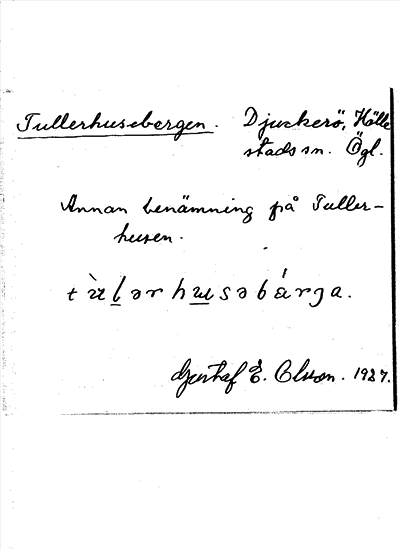 Tullerhusebergen. Djuckerö, Hälle
stads sn. Ögl.
Annan benämning på Tuller-
husen.
t ὺ l ə r h u s ə b ά r g a.
Gustaf E. Olson. 1927.